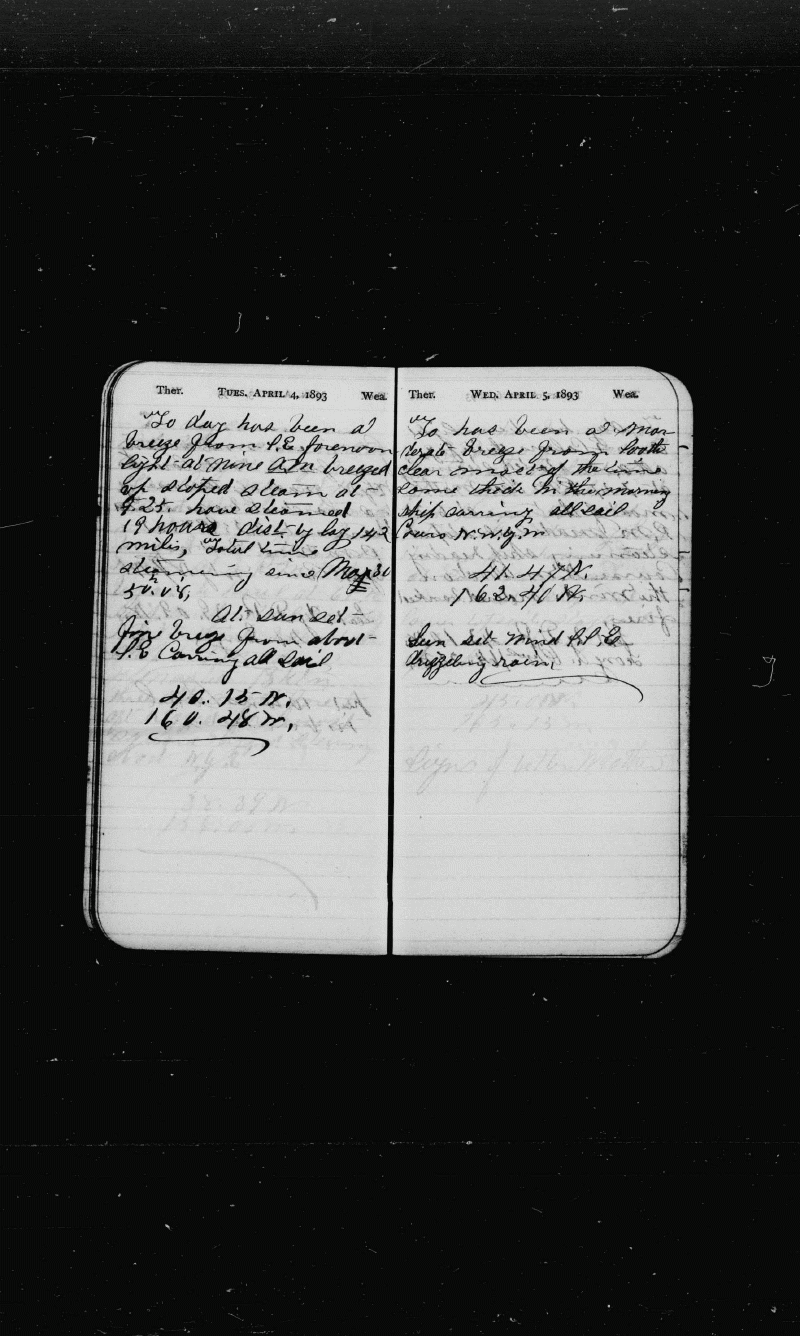 Ther. TUES. APRIL 4, 1893 Wea.
To day has been a
breeze from S.E forenoon
light at nine A.M breezed
up stoped steam at
9.25. have steamed
19 hours dist by log 142
miles, Total time
steaming since Mar 30
50.08,
At sun set
fine breeze from about
S.E Carring all Sail
40.. 15 N,
160. 48 W,
Ther. WED. APRIL 5, 1893 Wea.
To has been a Mor
terate breeze from South
clear most of the time
some thick in the morning
ship carring all sail
Cours N.W.
41 47 N.
162. 40 W.
Sun set wind S.S E
drizzeling rain,